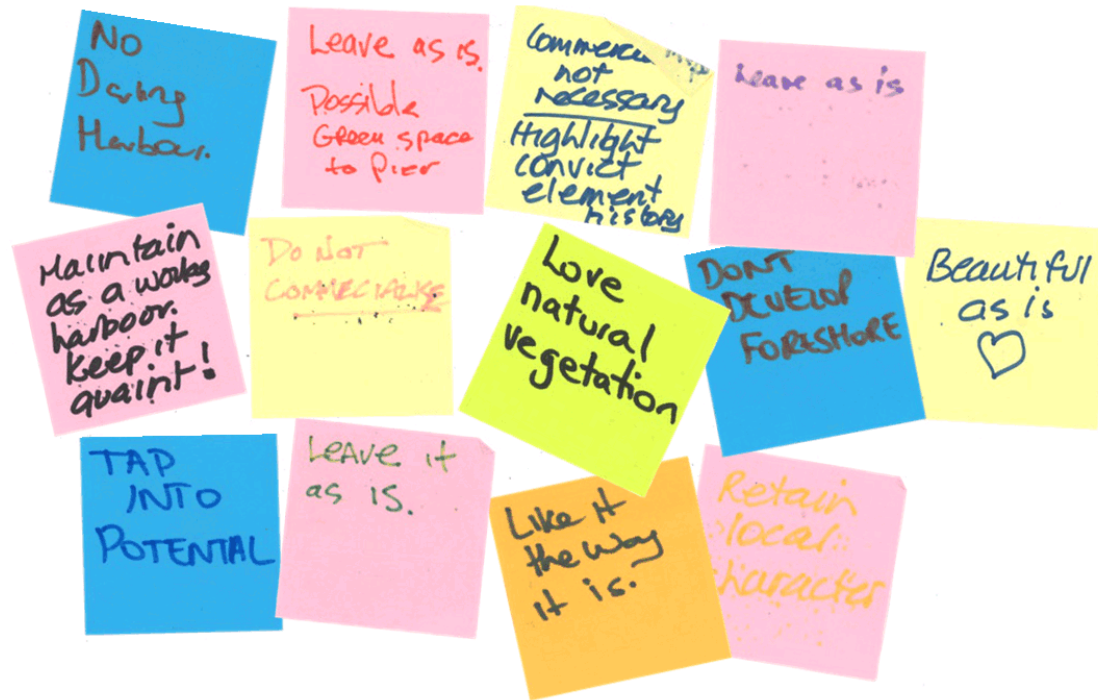 No
Darling
Harbour.
Leave as is.
Possible
Green space
to Pier
not
necessary
Highlight
convict
element
history
Leave as is
Maintain
as a working
harbour.
Keep it
quaint!
DO NOT
COMMECIALISE
Love
natural
vegetation
DONT
DEVELOP
FORESHORE
Beautiful
as is
TAP
INTO
POTENTIAL
LEAVE it
as is.
Like it
the way
it is.
Retain
local
character